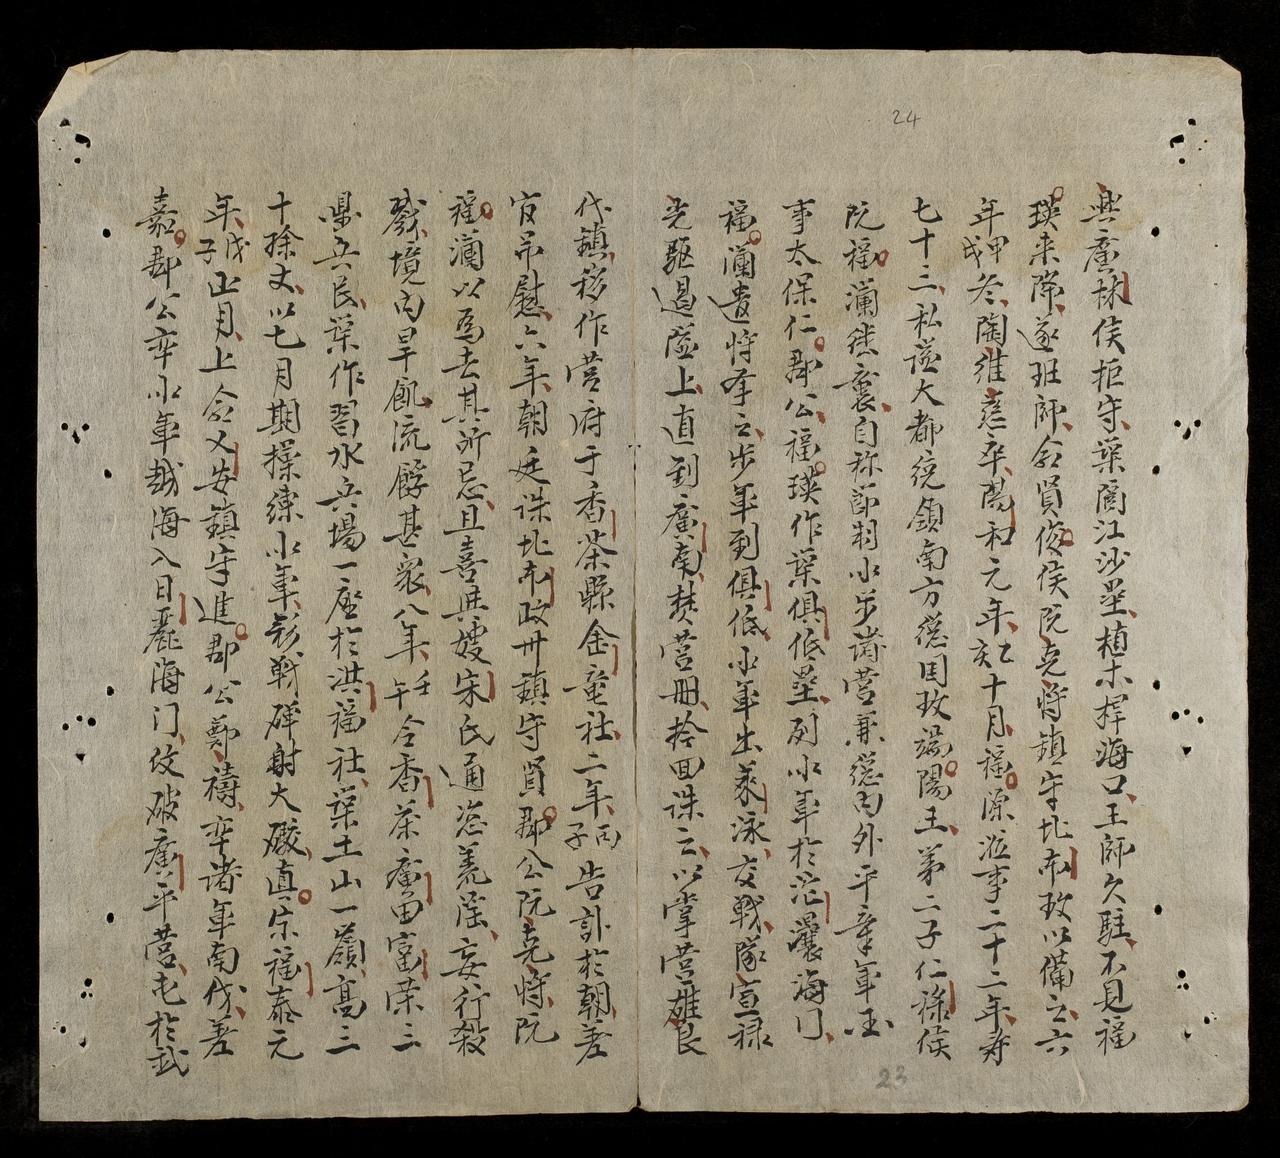 24
與廣林侯拒守築閣江沙壘植木捍海口王師久駐不見福
瑛来降遂班師命賢俊侯阮克將鎮守北布政以備之六
年甲戌冬陶維慈卒陽和元年乙亥十月福源涖事二十二年壽
七十三私謚大都統鎮南方總国政端陽王第二子仁祿侯
阮福瀾継襲自称節制水步諸營兼總内外平章軍国
事太保仁郡公福瑛作築俱低壘列水軍於沱灢海门
福瀾遣將奉云步軍到俱低水軍出萊泳交戰隊宣祿
先驅過隘上直到廣南焚營冊捨回誅云以掌營雄良
代鎮移作營府于香茶縣金童社二年丙子告訃於朝差
官吊慰六年朝廷誅北布政卅鎮守賢郡公阮克將阮
福瀾以為去其所忌且喜與嫂宋氏通恣荒淫妄行殺
戮境内旱飢流殍甚衆八年壬午令香茶廣田富荣三
縣兵民築作習水兵場一座於洪福社築土山一嶺高三
十餘丈以七月期操練水軍彩戰硑射大礮真宗福泰元
年戊子正月上令乂安鎮守進郡公鄭禱率諸軍南伐差
嘉郡公率水軍越海入日麗海门伎破廣平營屯於武
23